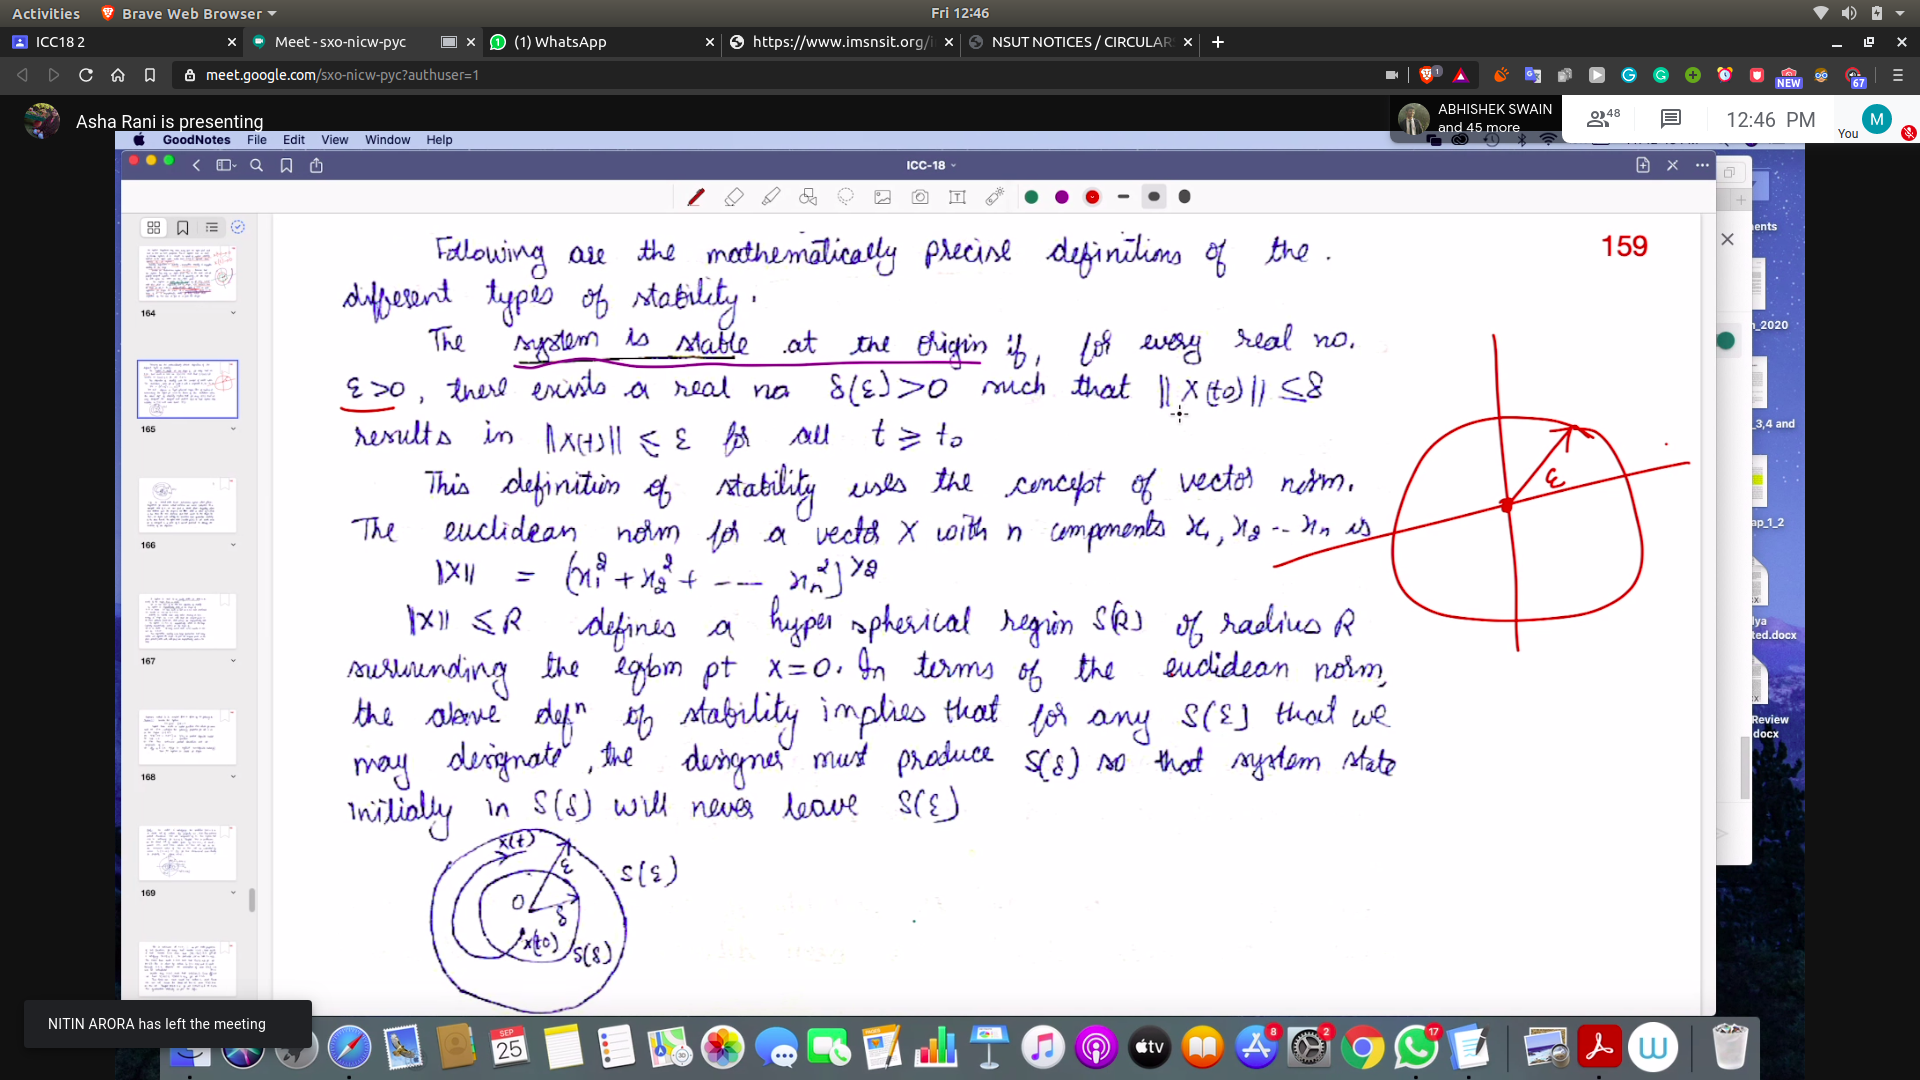 Activities Brave Web Browser Fri 12:46
ICC18 2 Meet - sxo-nicw-pyc (1) WhatsApp https://www.imsnsit.org/i NSUT NOTICES / CIRCULAR
meet.google.com/sxo-nicw-pyc?authuser=1 NEW 67
Asha Rani is presenting
ABHISHEK SWAIN
and 45 more
48
12:46 PM
You
M
GoodNotes File Edit View Window Help
ICC-18
159
Following are the mathematically precise definitions of the .
different types of stability.
The system is stable at the origin if, for every real no.
ε>0, there exists a real no δ(ε)>0 such that ||X(t0)|| ≤δ
results in ||X(t)|| ≤ ε for all t ≥ t0
This definition of stability uses the concept of vector norm.
The euclidean norm for a vector X with n components x1, x2 -- xn is
||X|| = (x1² + x2² + --- xn²)^1/2
||X|| ≤ R defines a hyper spherical region S(R) of radius R
surrunding the eqbm pt x=0. In terms of the euclidean norm,
the above defn of stability implies that for any S(ε) that we
may designate, the designer must produce S(δ) so that system state
initially in S(δ) will never leave S(ε)
x(t)
ε
S(ε)
0
δ
x(t0)
S(δ)
ε
164
165
166
167
168
169
ments
_2020
_3,4 and
ap_1_2
lya
ted.docx
Review
docx
NITIN ARORA has left the meeting
SEP
25
tv
8
2
17